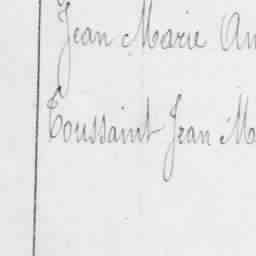 Jean Marie
Toussaint Jean